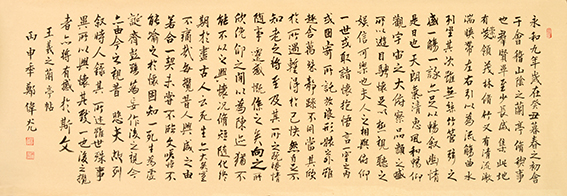 永和九年歲在癸丑暮春之初會
于會稽山陰之蘭亭脩禊事
也群賢畢至少長咸集此地
有崇領茂林脩竹又有清流激
湍映帶左右引以為流觴曲水
列坐其次雖無絲竹管絃之
盛一觴一詠亦足以暢敘幽情
是日也天朗氣清惠風和暢仰
觀宇宙之大俯察品類之盛
所以遊目騁懷足以極視聽之
娛信可樂也夫人之相與俯仰
一世或取諸懷抱悟言一室之內
或因寄所託放浪形骸之外雖
趣舍萬殊靜躁不同當其欣
於所遇暫得於己快然自足不
知老之將至及其所之既倦情
隨事遷感慨係之矣向之所
欣俛仰之間以為陳迹猶不
能不以之興懷況脩短隨化終
期於盡古人云死生亦大矣豈
不痛哉每攬昔人興感之由
若合一契未嘗不臨文嗟悼不
能喻之於懷固知一死生為虛
誕齊彭殤為妄作後之視今
亦由今之視昔悲夫故列
敘時人錄其所述雖世殊事
異所以興懷其致一也後之攬
者亦將有感於斯文
王羲之蘭亭帖
丙申年鄭偉光